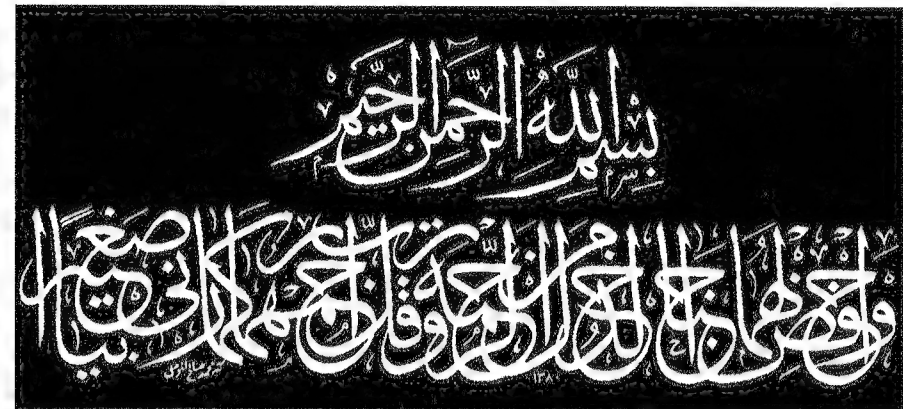 بِسْمِ اللَّهِ الرَّحْمَنِ الرَّحِيمِ
وَاخْفِضْ لَهُمَا جَنَاحَ الذُّلِّ مِنَ الرَّحْمَةِ وَقُلْ رَبِّ ارْحَمْهُمَا كَمَا رَبَّيَانِي صَغِيرًا